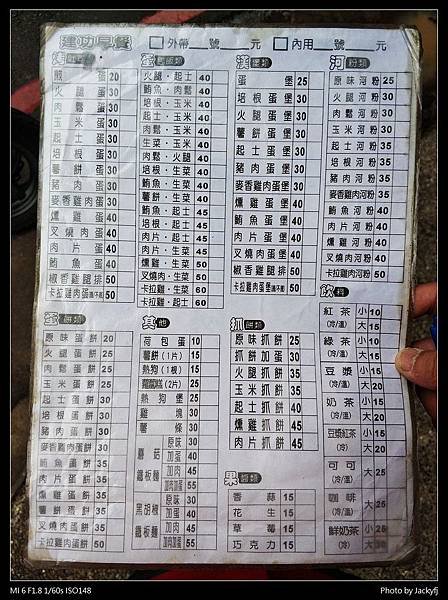 建功早餐 □外帶__號____元 □內用__號____元
蛋類
煎蛋 20
火腿蛋 30
肉鬆蛋 30
玉米蛋 30
起士蛋 30
培根蛋 30
薯餅蛋 30
豬肉蛋 30
麥香雞肉蛋 30
燻雞蛋 40
叉燒肉蛋 40
肉片蛋 40
鮪魚蛋 40
椒香雞腿排 50
卡拉雞肉蛋 50
蛋 類
火腿·起士 40
鮪魚·肉鬆 40
培根·玉米 40
起士·玉米 40
肉鬆·玉米 40
生菜·玉米 40
肉鬆·火腿 40
培根·生菜 40
起士·生菜 40
鮪魚·生菜 40
薯餅·生菜 40
鮪魚·起士 45
肉片·起士 45
燻雞·生菜 50
叉燒肉·生菜 50
卡拉雞·生菜 60
卡拉雞·起士 60
漢堡類
蛋堡 25
培根蛋堡 30
火腿蛋堡 30
薯餅蛋堡 30
豬肉蛋堡 30
麥香雞肉蛋堡 30
燻雞蛋堡 40
鮪魚蛋堡 40
肉片蛋堡 40
叉燒肉蛋堡 40
椒香雞腿排 50
卡拉雞肉蛋 50
河粉類
原味河粉 25
火腿河粉 30
肉鬆河粉 30
玉米河粉 30
起士河粉 35
培根河粉 35
豬肉河粉 35
麥香雞肉河粉 35
鮪魚河粉 40
肉片河粉 40
燻雞河粉 40
叉燒肉河粉 40
卡拉雞河粉 50
蛋餅類
原味蛋餅 20
火腿蛋餅 25
肉鬆蛋餅 25
玉米蛋餅 25
起士蛋餅 30
培根蛋餅 30
豬肉蛋餅 30
麥香蛋餅 30
鮪魚蛋餅 35
肉片蛋餅 35
燻雞蛋餅 35
叉燒肉蛋餅 35
卡拉雞蛋餅 50
其他
荷包蛋 10
薯餅(1片) 15
熱狗(1根) 15
蘿蔔糕(2片) 25
熱狗堡 25
雞塊 30
薯條 30
蘑菇鐵板麵 原味 30
加蛋 40
加肉 45
加肉加蛋 55
黑胡椒鐵板麵 原味 30
加蛋 40
加肉 45
加肉加蛋 55
抓餅類
原味抓餅 25
抓餅加蛋 30
火腿抓餅 35
玉米抓餅 35
起士抓餅 40
燻雞抓餅 45
肉片抓餅 45
果醬類
香蒜 15
花生 15
草莓 15
巧克力 15
飲料
紅茶 (冷/溫) 小 10
大 15
綠茶 (冷/溫) 小 10
大 15
豆漿 (冷/溫) 小 15
大 20
奶茶 (冷/溫) 小 15
大 20
豆漿紅茶 (冷/溫) 小 15
大 20
可可 (冷/溫) 大 25
咖啡 (冷/溫) 大 25
鮮奶茶 (冷/溫) 小 25
大 30
MI 6 F1.8 1/60s ISO148
Photo by Jackyfj